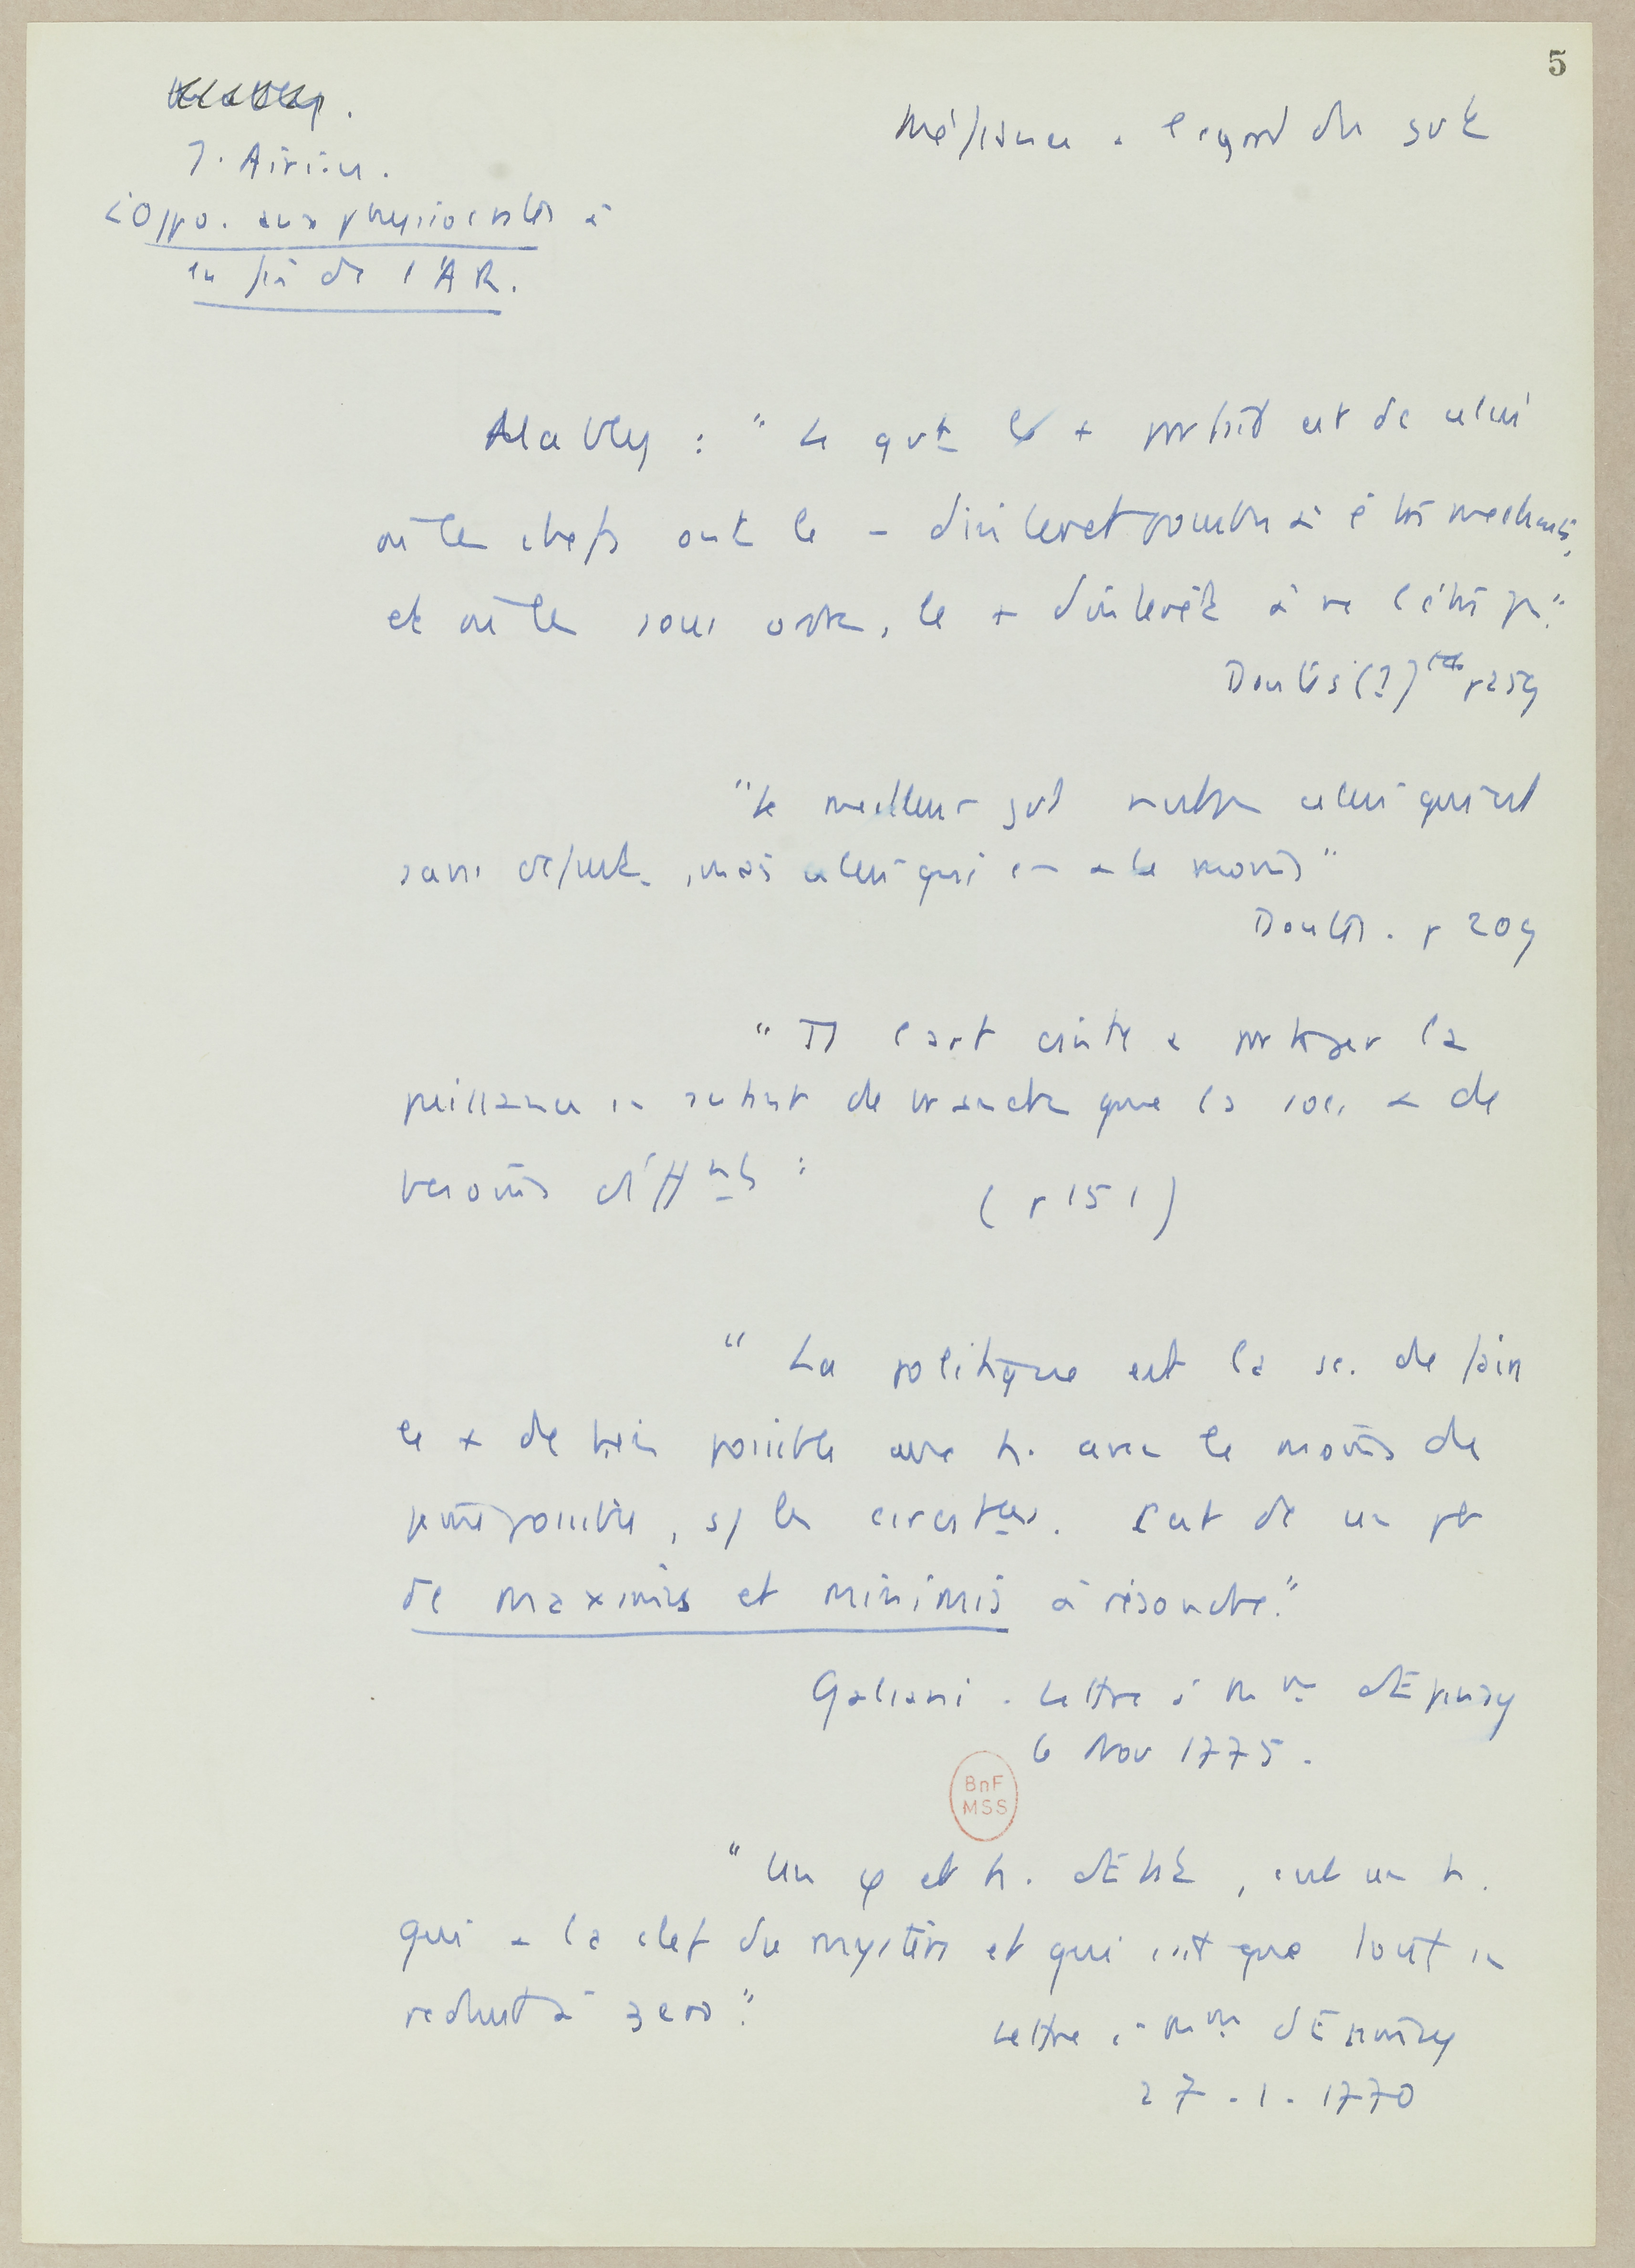 5
Mabbly.
J. Airiau.
L'Oppo. aux physiocrates à
la fin de l'AR.
Méfiance à l'égard du gvt
Mably : " Le gvt le + parfait est dc celui
où les chefs ont le - d'intérêt possible à ê très méchants,
et où les sous ordre, le + d'intérêt à ne l'être pas."
Doutes (?) p 259
"Le meilleur gvt n'est pas celui qui est
sans défaut, mais celui qui en a le moins"
Doutes. p 209
" Tt l'art consiste à partager la
puissance en autant de branches que la soc. a de
besoins différents :
( p 151 )
" La politique est la sc. de faire
le + de bien possible aux h. avec le moins de
peine possible, s/ les circstces. C'est dc un pb
de maximis et minimis à résoudre."
Galiani. Lettre à Mme d'Epinay
6 Nov 1775.
BnF
MSS
" Un φ et h. d'Etat, c'est un h.
qui a la clef du mystère et qui sait que tout se
reduit à zero."
Lettre à Mme d'Epinay
27.1.1770